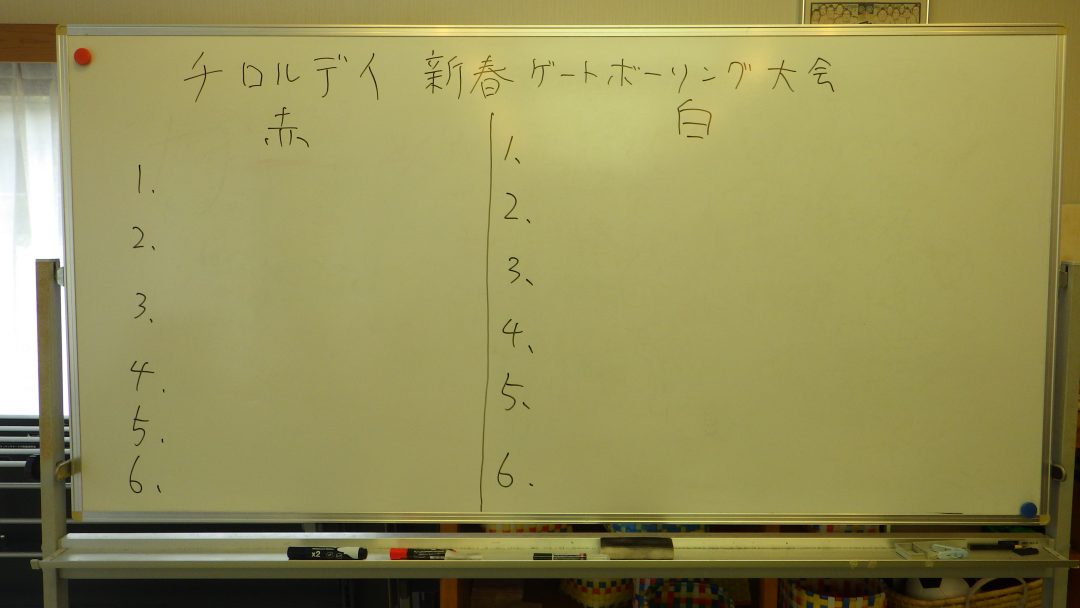 チロルデイ 新春ゲートボーリング大会
赤
1.
2.
3.
4.
5.
6.
白
1.
2.
3.
4.
5.
6.
x2